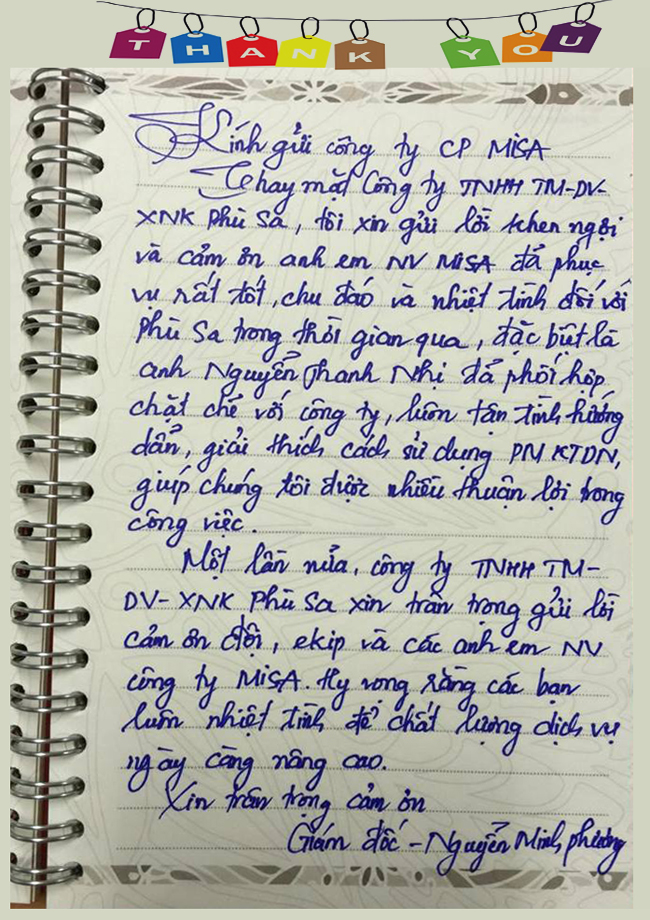 THANK YOU
Kính gửi công ty CP MISA
Thay mặt Công ty TNHH TM-DV-
XNK Phù Sa, tôi xin gửi lời khen ngợi
và cảm ơn anh em NV MISA đã phục
vụ rất tốt, chu đáo và nhiệt tình đối với
Phù Sa trong thời gian qua, đặc biệt là
anh Nguyễn Thanh Nhị đã phối hợp
chặt chẽ với công ty, luôn tận tình hướng
dẫn, giải thích cách sử dụng PM KTDN,
giúp chúng tôi được nhiều thuận lợi trong
công việc.
Một lần nữa, công ty TNHH TM-
DV-XNK Phù Sa xin trân trọng gửi lời
cảm ơn đội, ekip và các anh em NV
công ty MISA. Hy vọng rằng các bạn
luôn nhiệt tình để chất lượng dịch vụ
ngày càng nâng cao.
Xin trân trọng cảm ơn
Giám đốc - Nguyễn Minh Phương